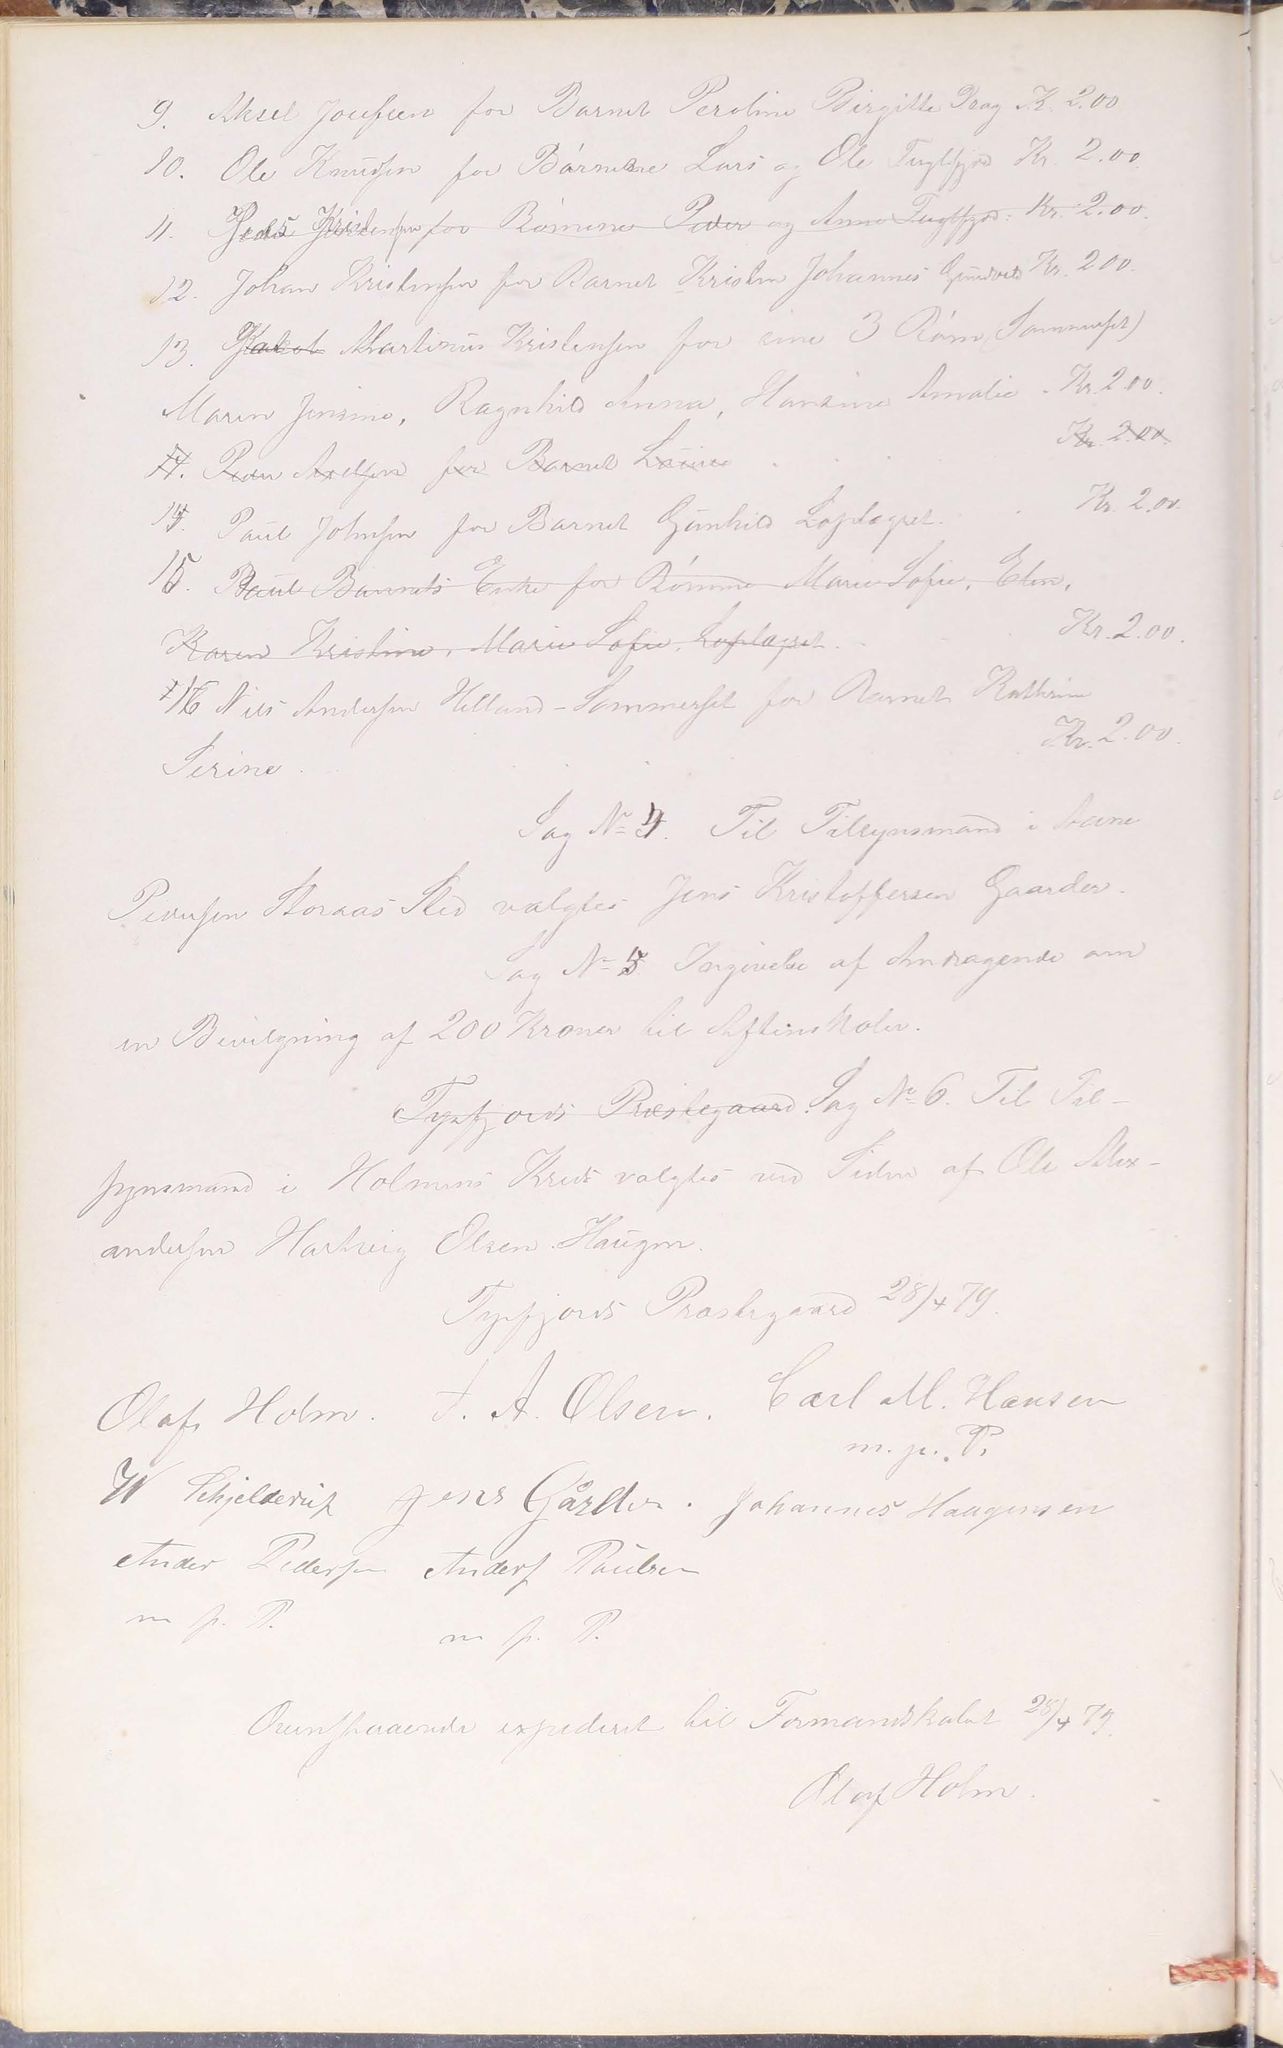 9. Aksel Josefsen for Barnet Peroline Birgitte Drag Kr. 2.00
10. Ole Knudsen for Børnene Lars og Ole Fuglfjord Kr. 2.00.
11. for Børnene Peder og Anna Fuglfjord. Kr. 2.00.
12. Johan Kristensen for Barnet Kristen Johannes Kr. 200.
13. Jakob Martinus Kristensen for sine 3 Børn (Sommerset)
Maren Jensine, Ragnhild Anna, Hansine Amalie. Kr. 2.00.
Peder Axelsen for Barnet Kr. 2.00.
14. Paul Johnsen for Barnet Gunhild Kr. 2.00.
15. Paul Enke for Børnene Marie Sofie, Elen,
Karen Kristine, Marie Sofie, Kr. 2.00.
16 Nils Andersen Helland-Sommerset for Barnet Kathrine
Serine Kr. 2.00.
Sag No 4. Til Tilsynsmand i Arne
Pedersen Storaas Sted valgtes Jens Kristoffersen Gaarder.
Sag No 5 Ingivelse af Andragende om
en Bevilgning af 200 Kroner til Aftenskoler.
Tysfjords Præstegaard. Sag No 6. Til Til-
synsmand i Holmens Kreds valgtes ved Siden af Ole Alex-
andersen Hartvig Olsen Haugen.
Tysfjords Præstegaard 28/4 79.
Olaf Holm. J. A. Olsen. Carl M. Hansen
m. p. P.
W Schjelderup Jens Gårder. Johannes Haagensen
Ander Pedersen Anders Paulsen
m p. P. m p. P.
Ovenstaaende expederet til Formandskabet 28/4 79.
Olaf Holm.